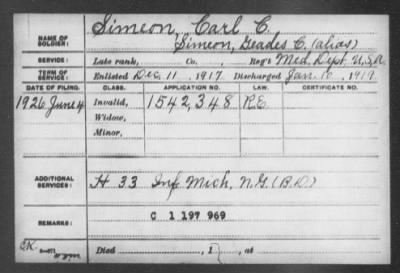 NAME OF SOLDIER: Simeon, Carl C.
Simeon, Geades C. (alias)
SERVICE: Late rank, Co. , Reg't Med. Dept. U.S.A.
TERM OF SERVICE: Enlisted Dec. 11, 1917. Discharged Jan. 10, 1919.
DATE OF FILING. CLASS. APPLICATION NO. LAW. CERTIFICATE NO.
1926 June 4 Invalid, 1542,348 R.E.
Widow,
Minor,
ADDITIONAL SERVICES: H 33 Inf. Mich. N.G. (B.D.)
REMARKS: C 1 197 969
CK.
Died , 1 , at